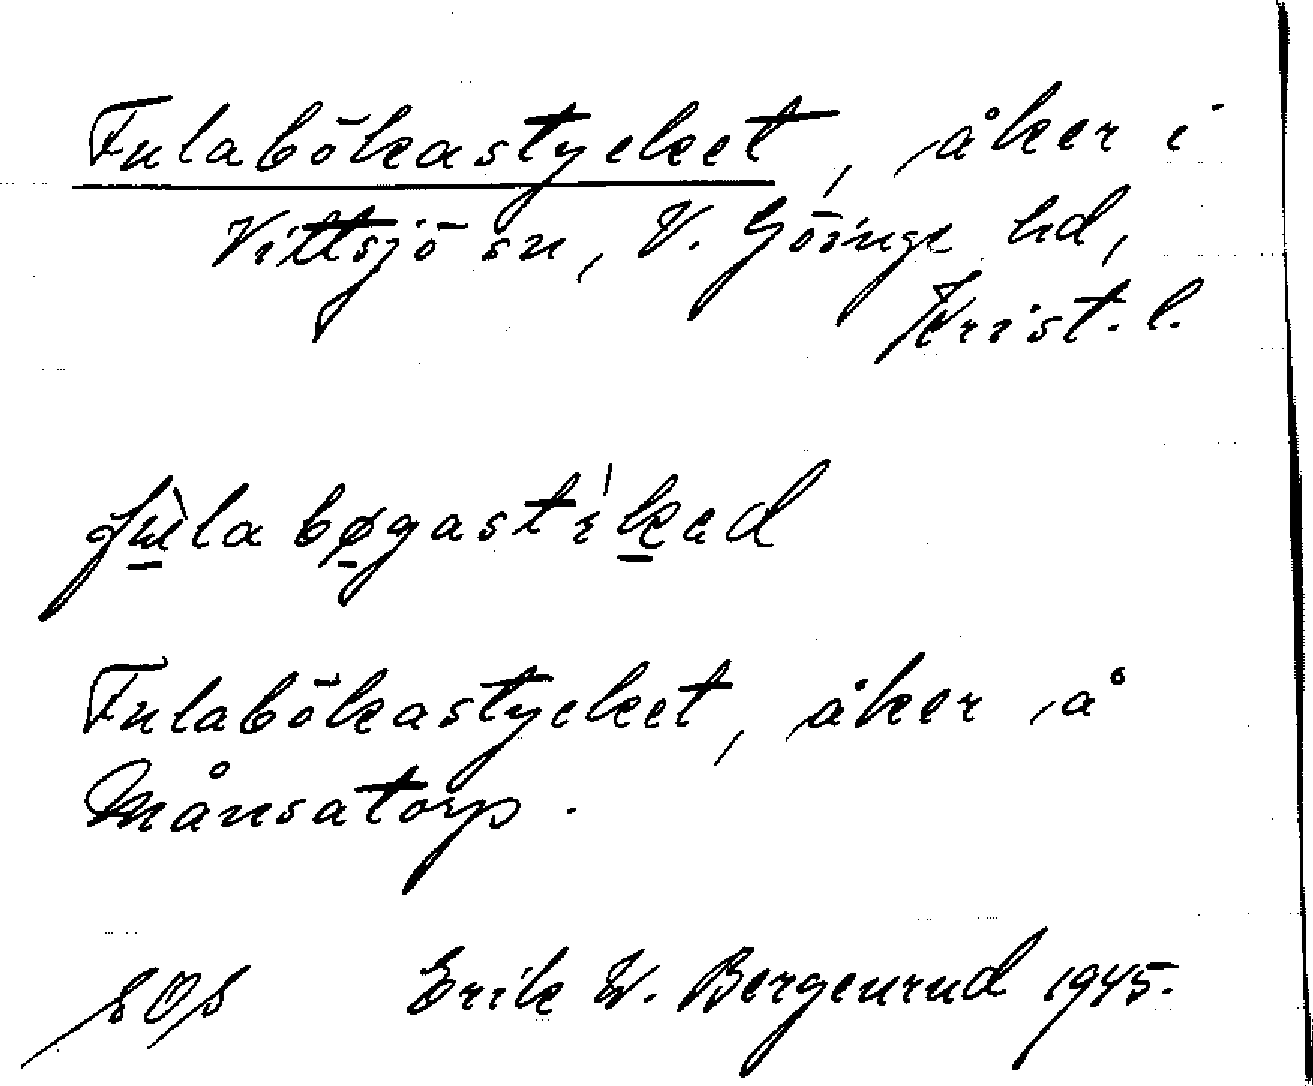 Fulabökastycket, åker i
Vittsjö sn, V. Göinge hd,
Krist. l.
fùlabøgastíkad
Fulabökastycket, åker å
Månsatorp.
SOS Erik W. Bergenrud 1945.